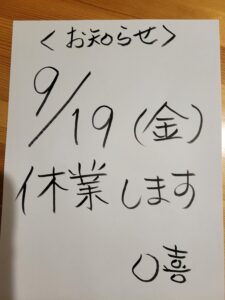 <お知らせ>
9/19(金)
休業します
〇喜